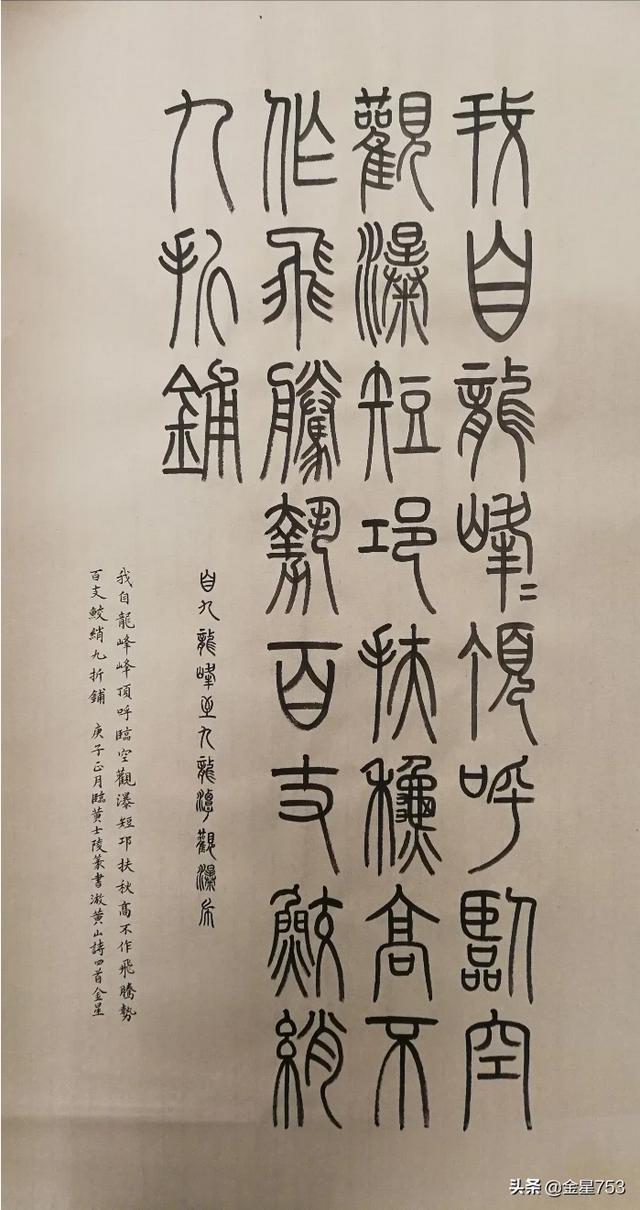 我自龍峰〻頂呼臨空
觀瀑短邛扶穐高不
作飛騰勢百支鮫綃
九折鋪
自九龍峰至九龍潭觀瀑布
我自龍峰峰頂呼臨空觀瀑短邛扶秋高不作飛騰勢
百支鮫綃九折鋪 庚子正月臨黃士陵篆書黃山詩四首金星
头条 @金星753